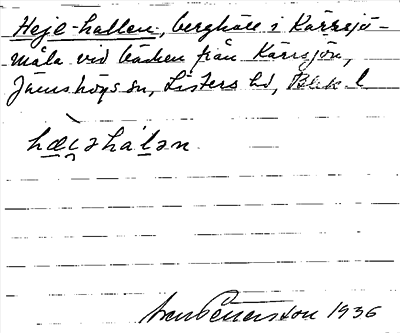 Heje-hallen, berghäll i Kärrsjö-
måla vid bäcken från Kärrsjön,
Jämshögs sn, Listers hd, Blek. l
hæi̯əhálən.
Pettersson 1936